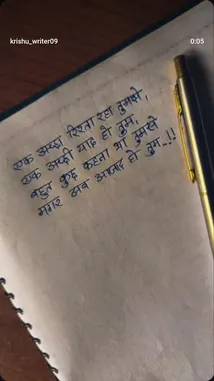 krishu_writer09
0:05
एक अच्छा रिश्ता रहा तुमसे,
एक अच्छी याद हो तुम,
बहुत कुछ कहना था तुमसे
मगर अब आबाद हो तुम..!!